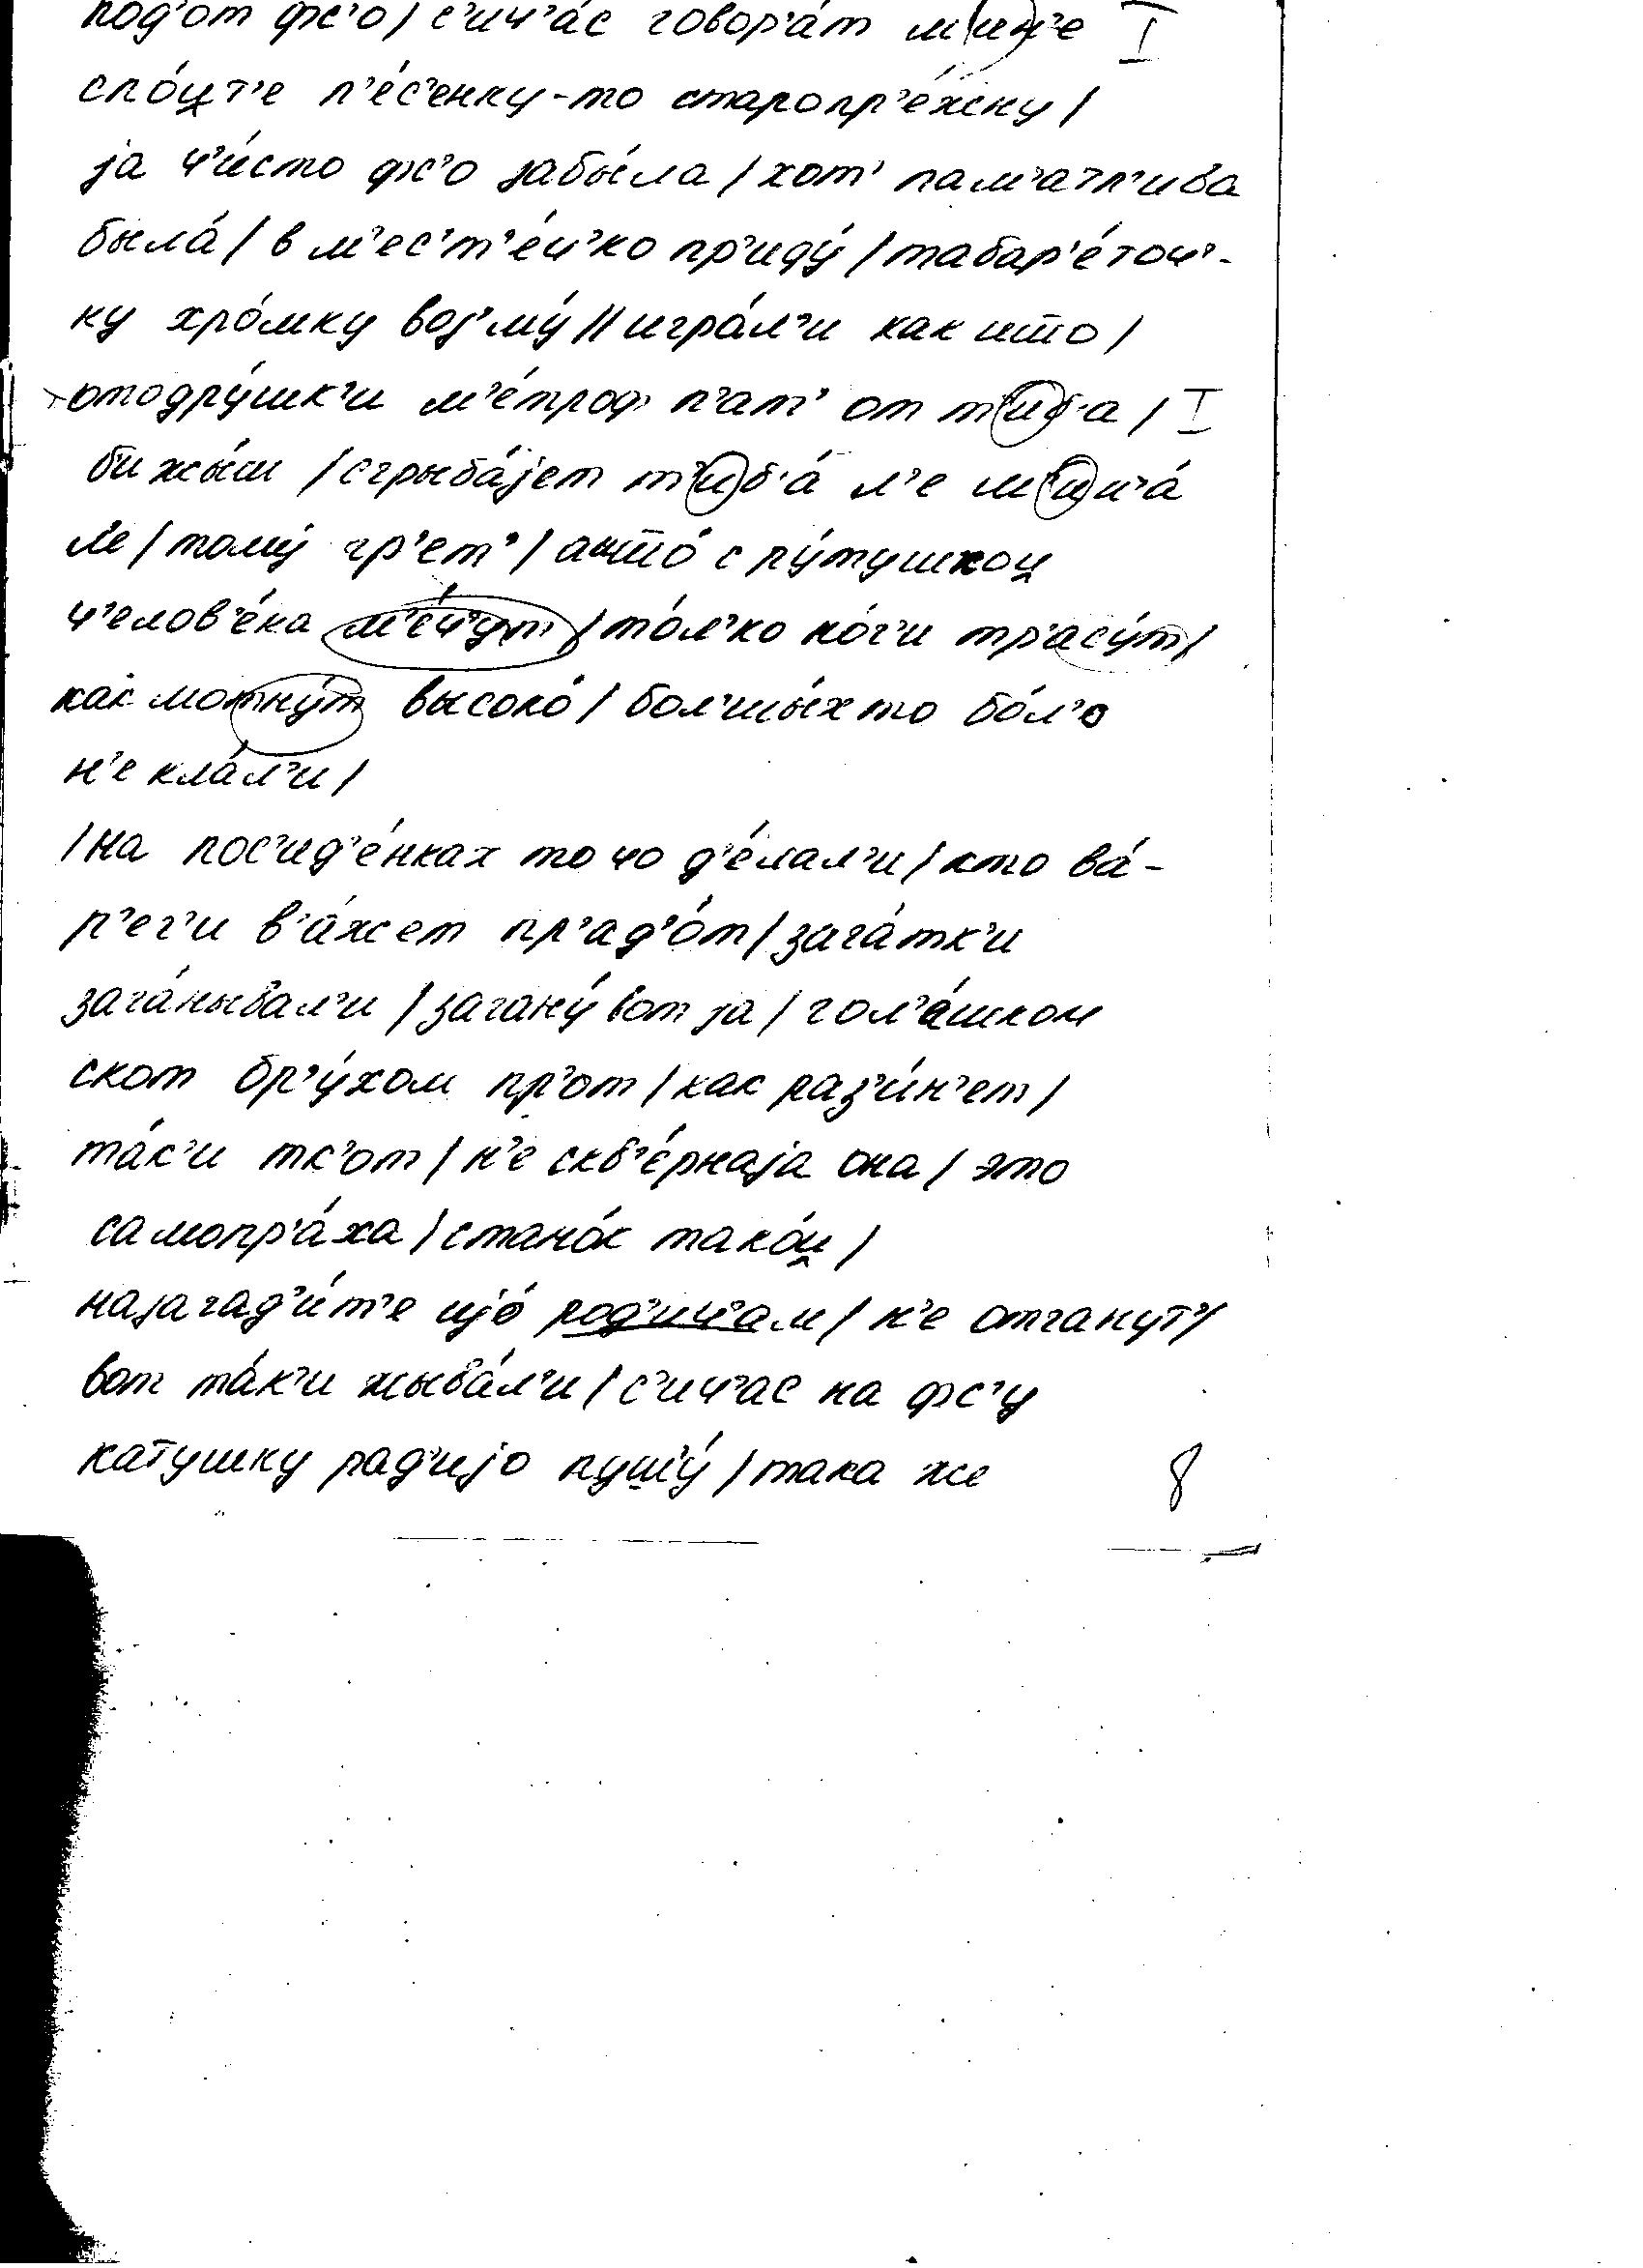 под'от фс'о / с'ич'а́с говор'а́т мин'е I
спо́и̯т'е п'е́с'енку-то старопр'е́жну /
ја ч'и́сто фс'о забы́ла / хот' пам'атл'ива
была́ / в м'ес'т'е́ч'ко пр'иду́ / табар'е́точ'-
ку хро́мку воз'му́ // игра́л'и как што /
отодру́шк'и м'е́троф п'ат' от тиб'а / I
бижы́ш / сгрыба́јет т'иб'а́ л'е м'ин'а́
ле / тому́ гр'ет' / а што́ с ру́тушкои̯
ч'елов'е́ка м'е́ч'ут / то́л'ко но́г'и тр'асу́т /
как мотну́т высоко́ / бол'шы́х то бо́л'о
н'е кла́л'и /
/ на пос'ид'е́нках то чо д'е́лал'и / кто ва́-
р'ег'и в'а́жет пр'ад'о́т / зага́тк'и
зага́нывал'и / загану́ вот ја / гол'а́шком
скот бр'у́хом пр'от / как раз'и́н'ет /
та́к'и тк'от / н'е скв'е́рнаја она / это
самопр'а́ха / стано́к тако́и̯ /
назагад'и́т'е ијо́ род'ич'ам / н'е отганут' /
вот та́к'и жыва́л'и / с'ич'ас на фс'у
катушку рад'ијо пушу́ / така же
8